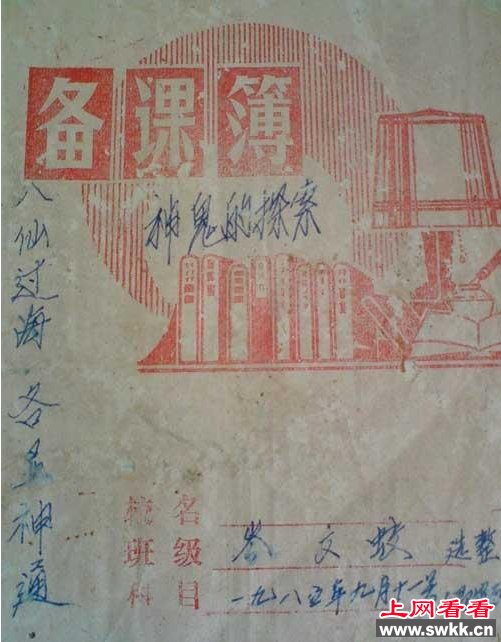 备课簿
神鬼的探索
八仙过海 各显神通
名
班级
科目
文
一九八五年九月十一
上网看看
www.swkk.cn